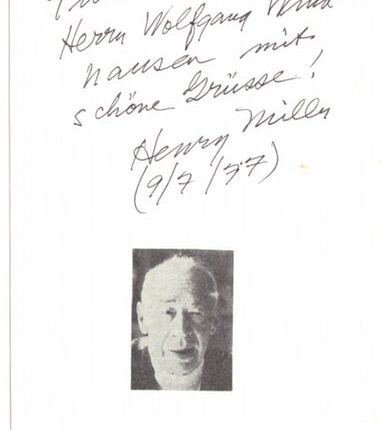 Herrn Wolfgang
hausen mit
schöne Grüsse!
Henry Miller
(9/7/77)